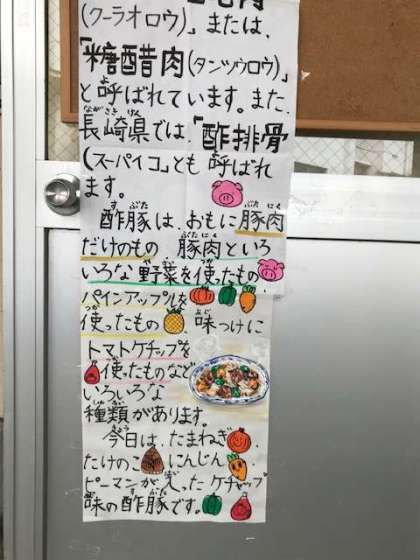 (クーラオロウ)」または、
「糖醋肉(タンツウロウ)」
と呼ばれています。また、
長崎県では、「酢排骨
(スーパイコ」とも呼ばれ
ます。
酢豚は、おもに豚肉
だけのもの 豚肉といろ
いろな野菜を使ったもの、
パインアップルを
使ったもの、味つけに
トマトケチップを
使ったものなど
いろいろな
種類があります。
今日は、たまねぎ、
たけのこ、にんじん、
ピーマンが入ったケチャップ
味の酢豚です。